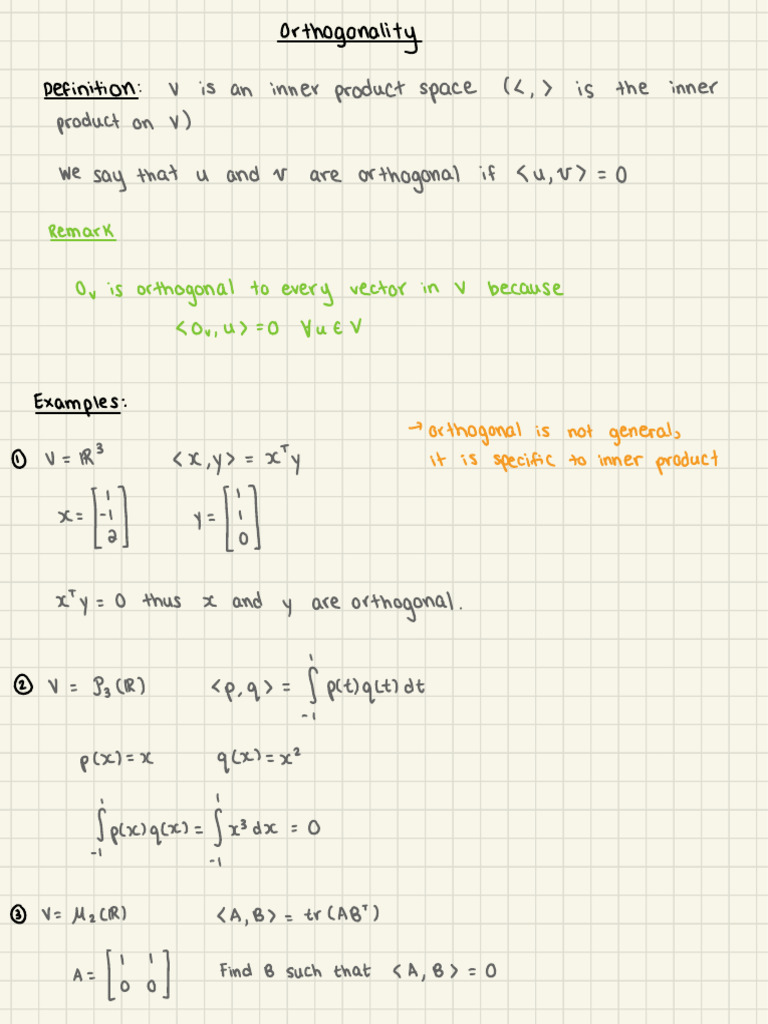 Orthogonality
Definition: V is an inner product space (<,> is the inner
product on V)
We say that u and v are orthogonal if <u,v> = 0
Remark
0ᵥ is orthogonal to every vector in V because
<0ᵥ,u> = 0 ∀u ∈ V
Examples:
→ orthogonal is not general,
it is specific to inner product
① V = ℝ³ <x,y> = xᵀy
x = [1 -1 2] y = [1 1 0]
xᵀy = 0 thus x and y are orthogonal.
② V = P₃(ℝ) <p,q> = ∫₋₁¹ p(t)q(t)dt
p(x) = x q(x) = x²
∫₋₁¹ p(x)q(x) = ∫₋₁¹ x³dx = 0
③ V = M₂(ℝ) <A,B> = tr(ABᵀ)
A = [1 1; 0 0] Find B such that <A,B> = 0